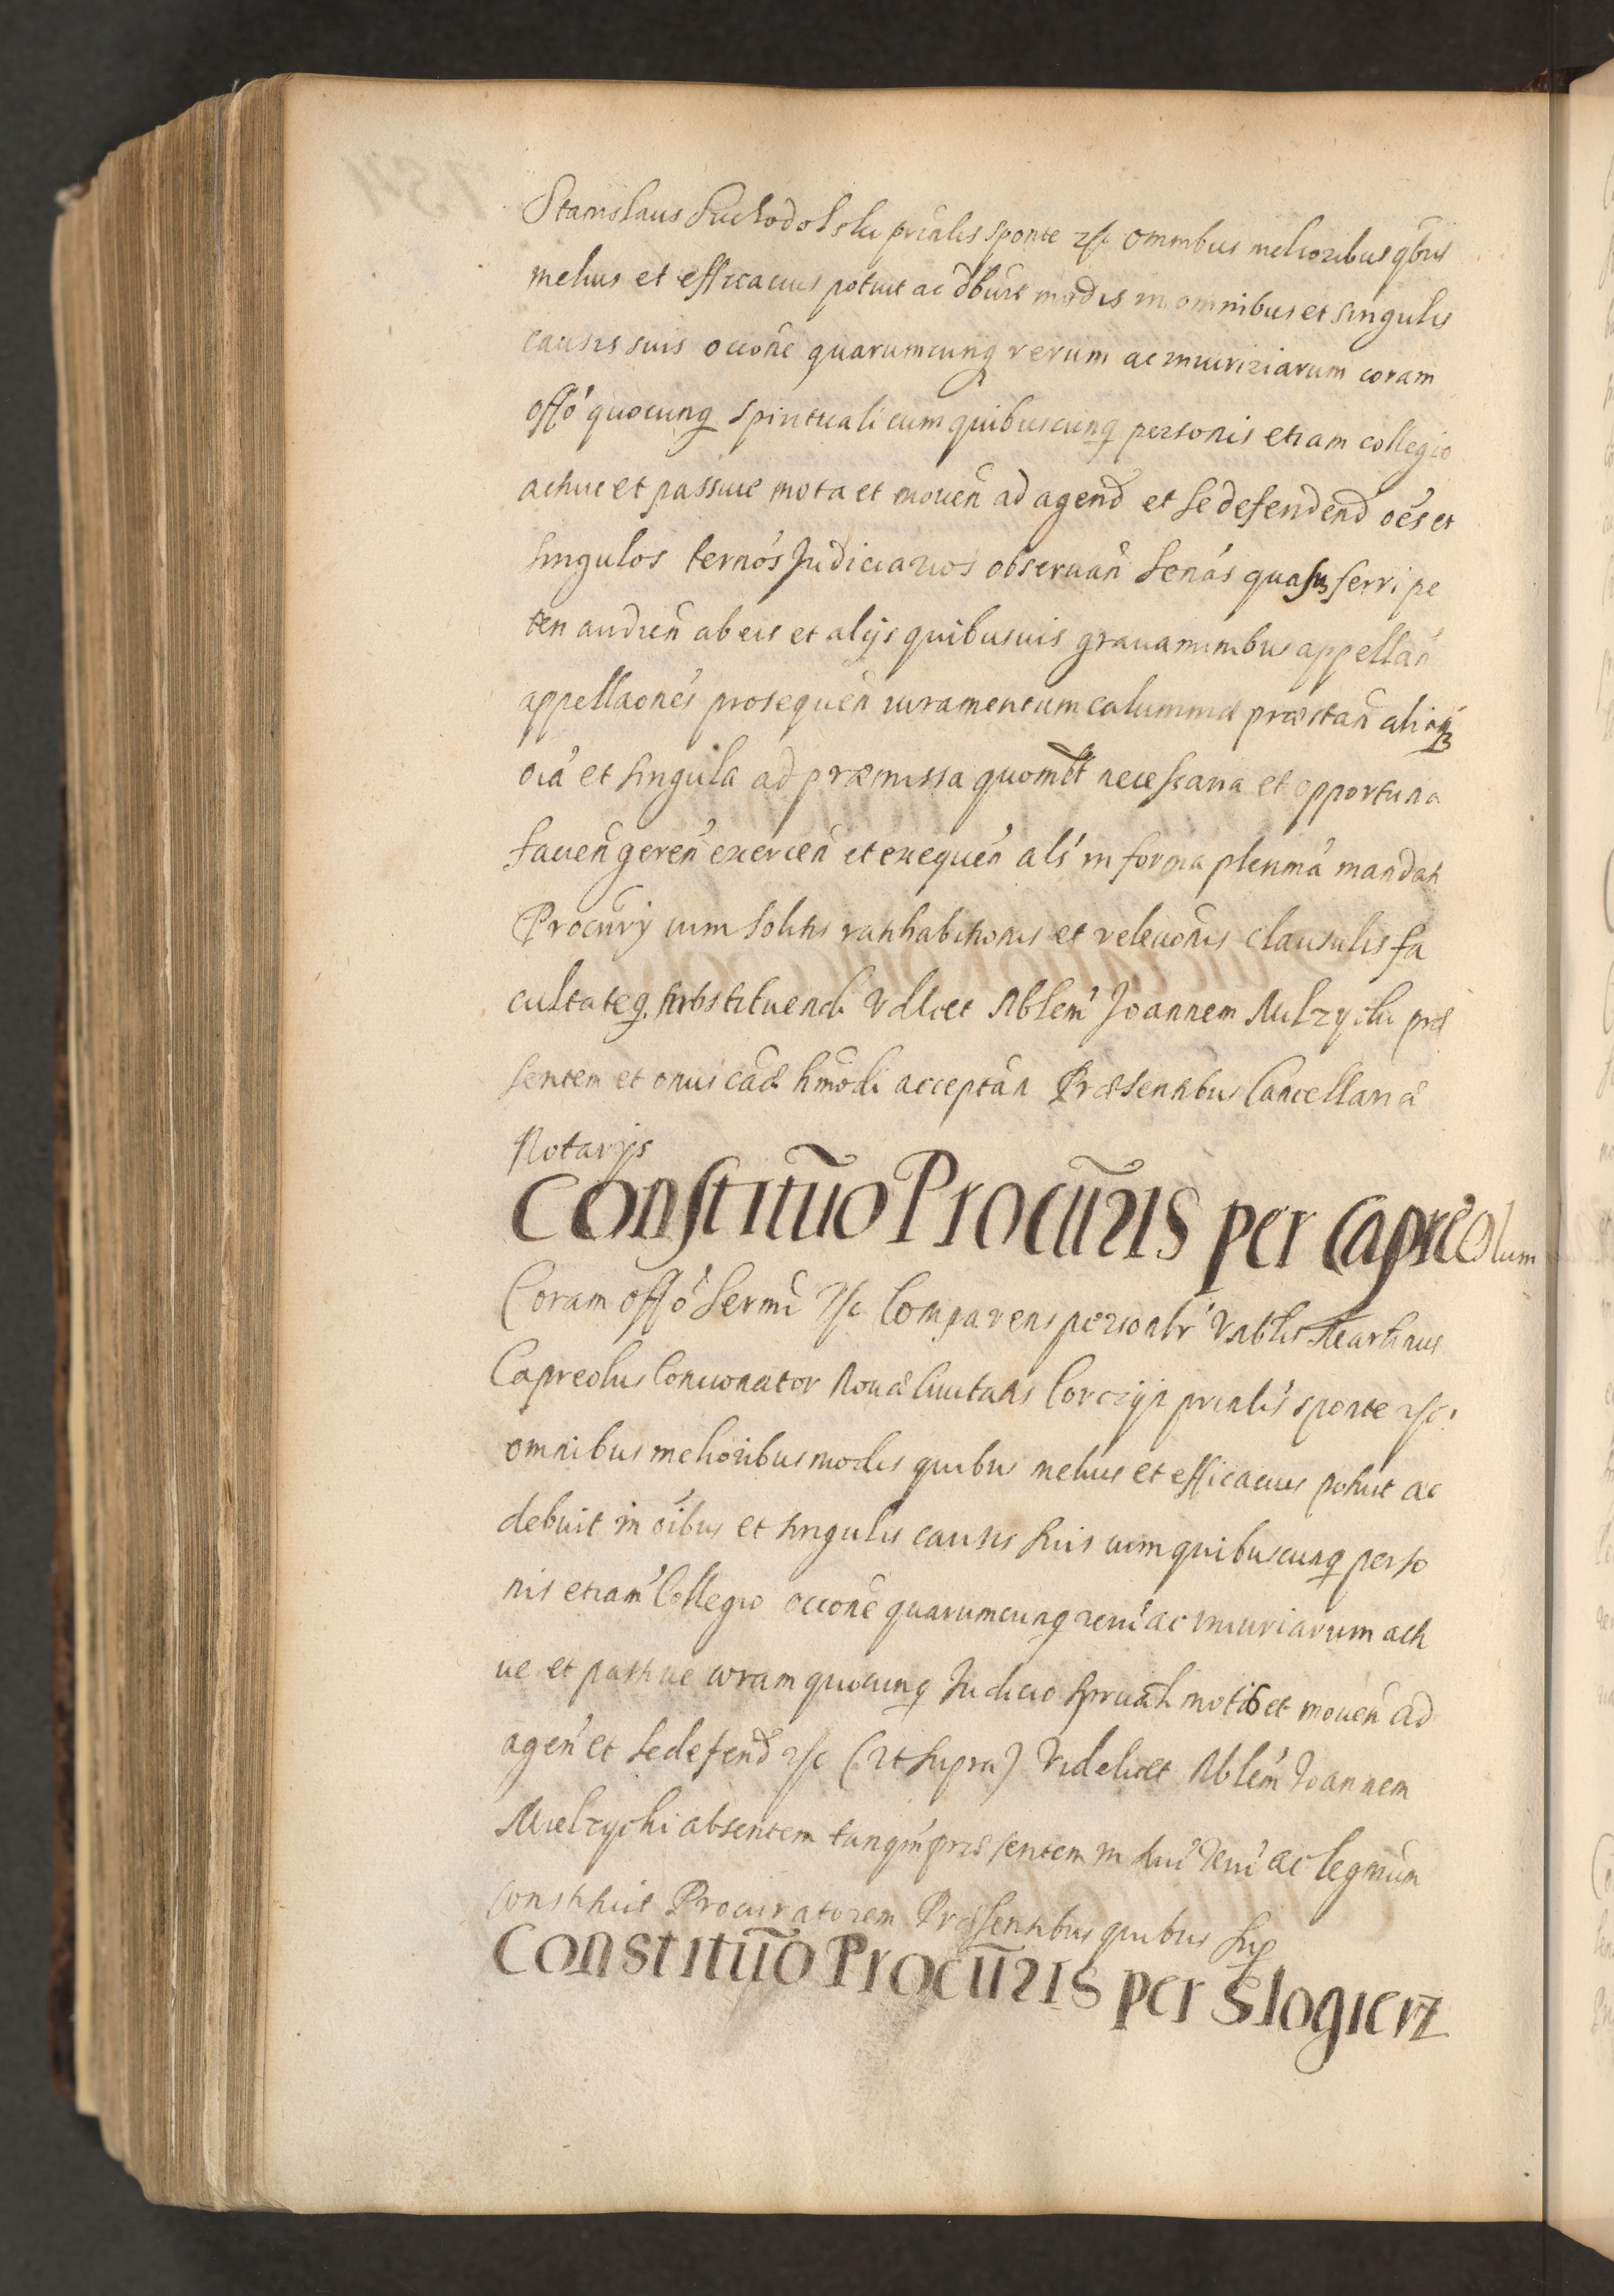 Stanislaus Suchodolski prinalis sponte etc omnibus melioribus qbus
melius et efficacius potuit ac dbuit modis in omnibus et singulis
causis suis occone quarumcunq rerum ac iniuriziarum coram
offo quocunq spirituali cum quibuscunq personis etiam collegio
actiue et passiue mota et mouen ad agend et se defendend oes et
singulos termos Judiciarios obseruan senas quasuis ferri pe
ten audien ab eis et alijs quibusuis grauaminibus appellan
appellaones prosequen iuramentum calumniæ præstan aliaq
oia et singula ad præmissa quomlt necessaria et opportuna
facien geren exercen et exequen als in forma plenma mandati
Procurij cum solitis ratihabitionis et releuonis clausulis fa
cultateq substituendi vdlicet Nblem Joannem Mielzycki præ
sentem et onus caæ hmodi acceptan Præsentibus Cancellariæ
Notarijs
Constituo Procuris per Capreolum
Coram offo Sermi etc Comparens personlr Vnblis Martinus
Capreolus Concionator Nouæ Ciuitatis Corczijn prinlis sponte etc
omnibus melioribus modis quibus melius et efficacius potuit ac
debuit in oibus et singulis causis suis cum quibuscunq perso
nis etiam Collegio occone quarumcunq reru ac iniuriarum acti
ue et passiue coram quocunq Judicio sprituali motis et mouen ad
agen et se defend etc (vt supra) Videlicet Nblem Joannem
Mielzychi absentem tanqm præsentem in sui veru ac legmum
constituit Procuratorem Præsentibus quibus sup
Constituo Procuris per Slogierz